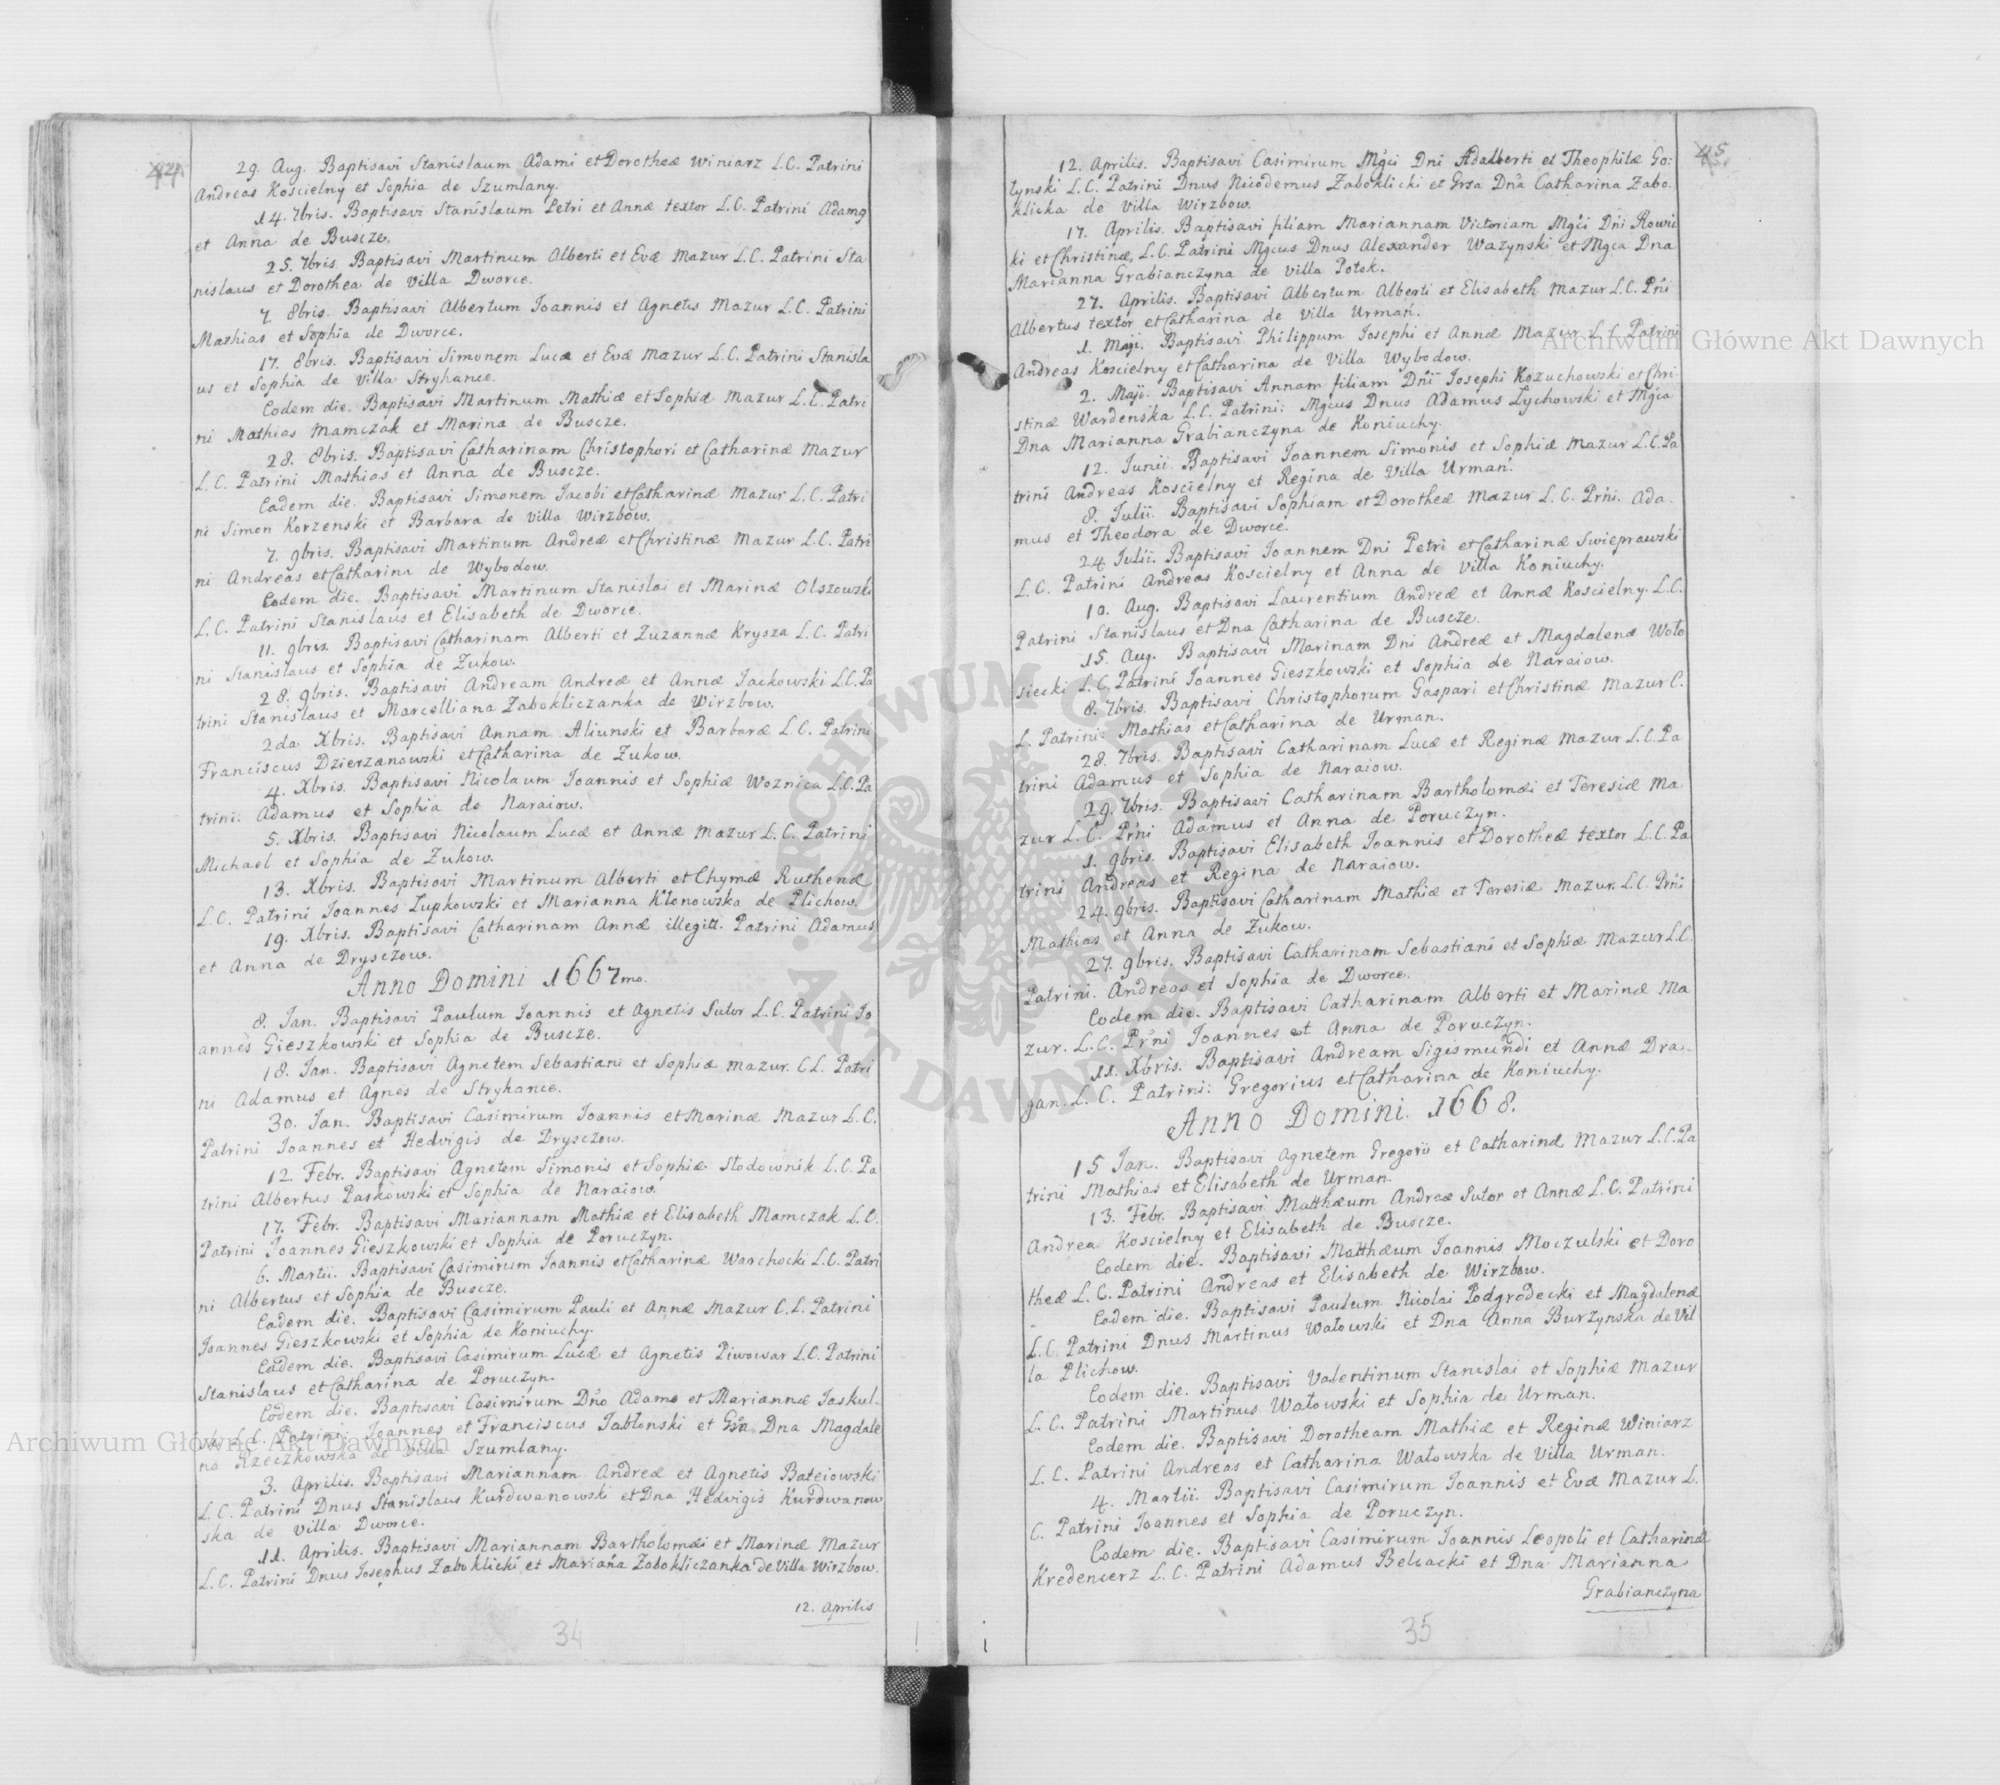 44
29. Aug. Baptisavi Stanislaum Adami et Dorotheæ Winiarz L.C. Patrini
Andreas Koscielny et Sophia de Szumlany.
14. 7bris. Baptisavi Stanislaum Petri et Annæ textor L.C. Patrini Adamg
et Anna de Buscze.
25. 7bris. Baptisavi Martinum Alberti et Evæ Mazur L.C. Patrini Sta
nislaus et Dorothea de Villa Dworce.
7. 8bris. Baptisavi Albertum Ioannis et Agnetis Mazur L.C. Patrini
Mathias et Sophia de Dworce.
17. 8bris. Baptisavi Simonem Lucæ et Evæ Mazur L.C. Patrini Stanisla
us et Sophia de Villa Stryhance.
Eodem die. Baptisavi Martinum Mathiæ et Sophiæ Mazur L.C. Patri
ni Mathias Mamczak et Marina de Buscze.
28. 8bris. Baptisavi Catharinam Christophori et Catharinæ Mazur
L.C. Patrini Mathias et Anna de Buscze.
Eadem die. Baptisavi Simonem Iacobi et Catharinæ Mazur L.C. Patri
ni Simon Korzenski et Barbara de Villa Wirzbow.
7. 9bris. Baptisavi Martinum Andreæ et Christinæ Mazur L.C. Patri
ni Andreas et Catharina de Wybodow.
Eodem die. Baptisavi Martinum Stanislai et Marinæ Olszowski
L.C. Patrini Stanislaus et Elisabeth de Dworce.
11. 9bris. Baptisavi Catharinam Alberti et Zuzannæ Krysza L.C. Patri
ni Stanislaus et Sophia de Zukow.
28. 9bris. Baptisavi Andream Andreæ et Annæ Iackowski L.C. Pa
trini Stanislaus et Marcelliana Zabokliczanka de Wirzbow.
2da Xbris. Baptisavi Annam Aliunski et Barbaræ L.C. Patrini
Franciscus Dzierzanowski et Catharina de Zukow.
4. Xbris. Baptisavi Nicolaum Ioannis et Sophiæ Woznica L.C. Pa
trini: Adamus et Sophia de Naraiow.
5. Xbris. Baptisavi Nicolaum Lucæ et Annæ Mazur L.C. Patrini
Michael et Sophia de Zukow.
13. Xbris. Baptisavi Martinum Alberti et Chymæ Ruthenæ
L.C. Patrini Ioannes Lupkowski et Marianna Kłonowska de Plichow.
19. Xbris. Baptisavi Catharinam Annæ illegitt. Patrini Adamus
et Anna de Drysczow.
Anno Domini 1667mo.
8. Ian. Baptisavi Paulum Ioannis et Agnetis Sutor L.C. Patrini Io
annes Gieszkowski et Sophia de Buscze.
18. Ian. Baptisavi Agnetem Sebastiani et Sophiæ Mazur. C.L. Patri
ni Adamus et Agnes de Stryhance.
30. Ian. Baptisavi Casimirum Ioannis et Marinæ Mazur L.C.
Patrini Ioannes et Hedvigis de Drysczow.
12. Febr. Baptisavi Agnetem Simonis et Sophiæ Słodownik L.C. Pa
trini Albertus Paskowski et Sophia de Naraiow.
17. Febr. Baptisavi Mariannam Mathiæ et Elisabeth Mamczak L.C.
Patrini Ioannes Gieszkowski et Sophia de Poruczyn.
6. Martii. Baptisavi Casimirum Ioannis et Catharinæ Warchocki L.C. Patri
ni Albertus et Sophia de Buscze.
Eadem die. Baptisavi Casimirum Pauli et Annæ Mazur C.L. Patrini
Ioannes Gieszkowski et Sophia de Koniuchy.
Eadem die. Baptisavi Casimirum Lucæ et Agnetis Piwowar L.C. Patrini
Stanislaus et Catharina de Poruczyn.
Eodem die. Baptisavi Casimirum Dno Adamo et Mariannæ Iaskul-
L.C. Patrini: Ioannes et Franciscus Iabłonski et Dna Magdale
na Rzeczkowska de Villa Szumlany.
3. Aprilis. Baptisavi Mariannam Andreæ et Agnetis Bateiowski
L.C. Patrini Dnus Stanislaus Kurdwanowski et Dna Hedvigis Kurdwanow
ska de Villa Dworce.
11. Aprilis. Baptisavi Mariannam Bartholomæi et Marinæ Mazur
L.C. Patrini Dnus Iosephus Zaboklicki et Mariaña Zabokliczanka de Villa Wirzbow.
12. Aprilis
34
45
12. Aprilis. Baptisavi Casimirum Mgci Dni Adalberti et Theophilæ Go:
łynski L.C. Patrini Dnus Nicodemus Zaboklicki et Grsa Dna Catharina Zabo.
klicka de Villa Wirzbow.
17. Aprilis. Baptisavi filiam Mariannam Victoriam Mgci Dni Rowic
ki et Christinæ, L.C. Patrini Mgcus Dnus Alexander Wazynski et Mgca Dna
Marianna Grabianczyna de Villa Potok.
27. Aprilis. Baptisavi Albertum Alberti et Elisabeth Mazur L.C. Pñi
Albertus textor et Catharina de Villa Urmań.
1. Maji. Baptisavi Philippum Iosephi et Annæ Mazur L.C. Patrini
Andreas Koscielny et Catharina de Villa Wybodow.
2. Maji. Baptisavi Annam filiam Dñi Iosephi Kozuchowski et Chri-
stinæ Wardenska L.C. Patrini: Mgcus Dnus Adamus Lychowski et Mgca
Dna Marianna Grabianczyna de Koniuchy.
12. Iunii. Baptisavi Ioannem Simonis et Sophiæ Mazur L.C. Pa
trini Andreas Koscielny et Regina de Villa Urman.
8. Iulii. Baptisavi Sophiam et Dorotheæ Mazur L.C. Prñi. Ada-
mus et Theodora de Dworce.
24 Iulii. Baptisavi Ioannem Dni Petri et Catharinæ Swieprawski
L.C. Patrini Andreas Koscielny et Anna de Villa Koniuchy.
10. Aug. Baptisavi Laurentium Andreæ et Annæ Koscielny. L.C.
Patrini Stanislaus et Dna Catharina de Buscze.
15. Aug. Baptisavi Marinam Dni Andreæ et Magdalenæ Woło
siecki L.C. Patrini Ioannes Gieszkowski et Sophia de Naraiow.
8. 7bris. Baptisavi Christophorum Gaspari et Christinæ Mazur C.
L. Patrini: Mathias et Catharina de Urman.
28. 7bris. Baptisavi Catharinam Lucæ et Reginæ Mazur L.C. Pa
trini Adamus et Sophia de Naraiow.
29. 7bris. Baptisavi Catharinam Bartholomæi et Teresiæ Ma
zur L.C. Prñi Adamus et Anna de Poruczyn.
1. 9bris. Baptisavi Elisabeth Ioannis et Dorotheæ textor L.C. Pa
trini Andreas et Regina de Naraiow.
24. 9bris. Baptisavi Catharinam Mathiæ et Teresiæ Mazur. L.C. Prñi
Mathias et Anna de Zukow.
27. 9bris. Baptisavi Catharinam Sebastiani et Sophiæ Mazur L.C.
Patrini. Andreas et Sophia de Dworce.
Eodem die. Baptisavi Catharinam Alberti et Marinæ Ma
zur. L.C. Prñi Ioannes et Anna de Poruczyn.
11. Xbris. Baptisavi Andream Sigismundi et Annæ Dra-
gan. L.C. Patrini: Gregorius et Catharina de Koniuchy.
Anno Domini. 1668.
15 Ian. Baptisavi Agnetem Gregorii et Catharinæ Mazur L.C. Pa
trini Mathias et Elisabeth de Urman.
13. Febr. Baptisavi Matthæum Andreæ Sutor et Annæ L.C. Patrini
Andrea Koscielny et Elisabeth de Buscze.
Eodem die. Baptisavi Matthæum Ioannis Moczulski et Doro
theæ L.C. Patrini Andreas et Elisabeth de Wirzbow.
Eadem die. Baptisavi Paulum Nicolai Podgrodecki et Magdalenæ
L.C. Patrini Dnus Martinus Wałowski et Dna Anna Burzynska de Vil
la Plichow.
Eodem die. Baptisavi Valentinum Stanislai et Sophiæ Mazur
L.C. Patrini Martinus Wałowski et Sophia de Urman.
Eodem die. Baptisavi Dorotheam Mathiæ et Reginæ Winiarz
L.C. Patrini Andreas et Catharina Wałowska de Villa Urman.
4. Martii. Baptisavi Casimirum Ioannis et Evæ Mazur L.
C. Patrini Ioannes et Sophia de Poruczyn.
Eodem die. Baptisavi Casimirum Ioannis Leopoli et Catharinæ
Kredencerz L.C. Patrini Adamus Belcacki et Dna Marianna
Grabianczyna
35
Archiwum Główne Akt Dawnych
Archiwum Główne Akt Dawnych
ARCHIWUM GŁÓWNE AKT DAWNYCH